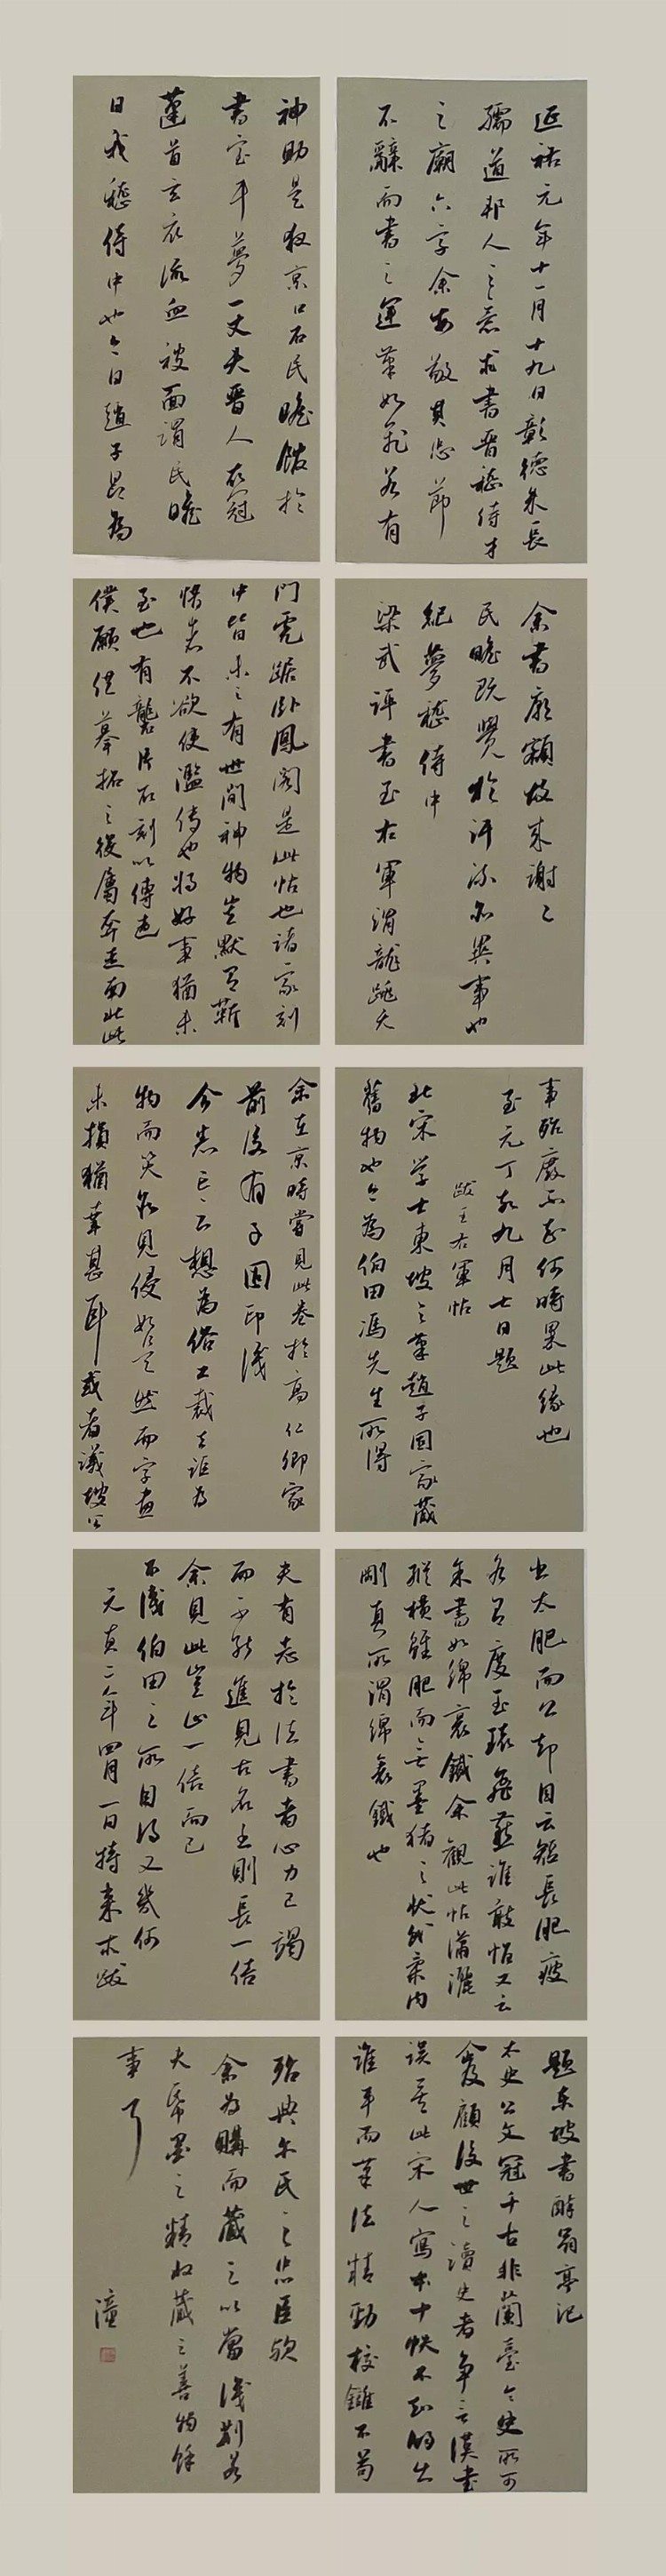 延祐元年十一月十九日彰德朱長
孺道邦人之意求書晉嵇侍中
之廟六字余每敬其忠節
不辭而書之運筆如飛若有
神助是夜京口石民瞻館於
書室中夢一丈夫晉人衣冠
蓬首玄衣流血被面謂民瞻
曰我嵇侍中也今日趙子昂為
余書廟額故來謝之
民瞻既覺於汗流亦異事也
紀夢嵇侍中
梁武評書至右軍謂龍跳天
門虎踞臥鳳閣是此帖也諸家刻
中皆未之有世間神物豈默有靳
惜者不欲使濫傳也將好事猶未
至也有礱片石刻以傳遠
僕願任摹拓之後屬奔走南北此
事殆廢不知何時果此緣也
至元丁亥九月七日題
跋王右軍帖
北宋學士東坡之筆趙子固家藏
舊物也今為伯田馮先生所得
余在京時嘗見此卷於高仁卿家
前後有子固印識
今悉亡之想為俗工裁去誰為
物而笑亦見侵如是 然而字畫
未損猶幸甚耳或者議坡公
書太肥而公却自云短長肥瘦
各有度玉環飛燕誰敢憎又云
余書如綿裹鐵余觀此帖瀟灑
縱橫雖肥而無墨豬之狀外柔內
剛真所謂綿裹鐵也
夫有志於法書者心力已竭
而不能進見古名書則長一倍
余見此豈止一倍而已
不識伯田之所自得又幾何
元貞二年四月一日持來求跋
題東坡書醉翁亭記
太史公文冠千古非蘭臺令史所可
企及顧後世之讀史者爭言漢書
誤矣此宋人寫本十帙不知的出
誰手而筆法精勁校讎不苟
殆典
余為購而藏之以當識別若
夫紙墨之精收藏之善物餘
事耳